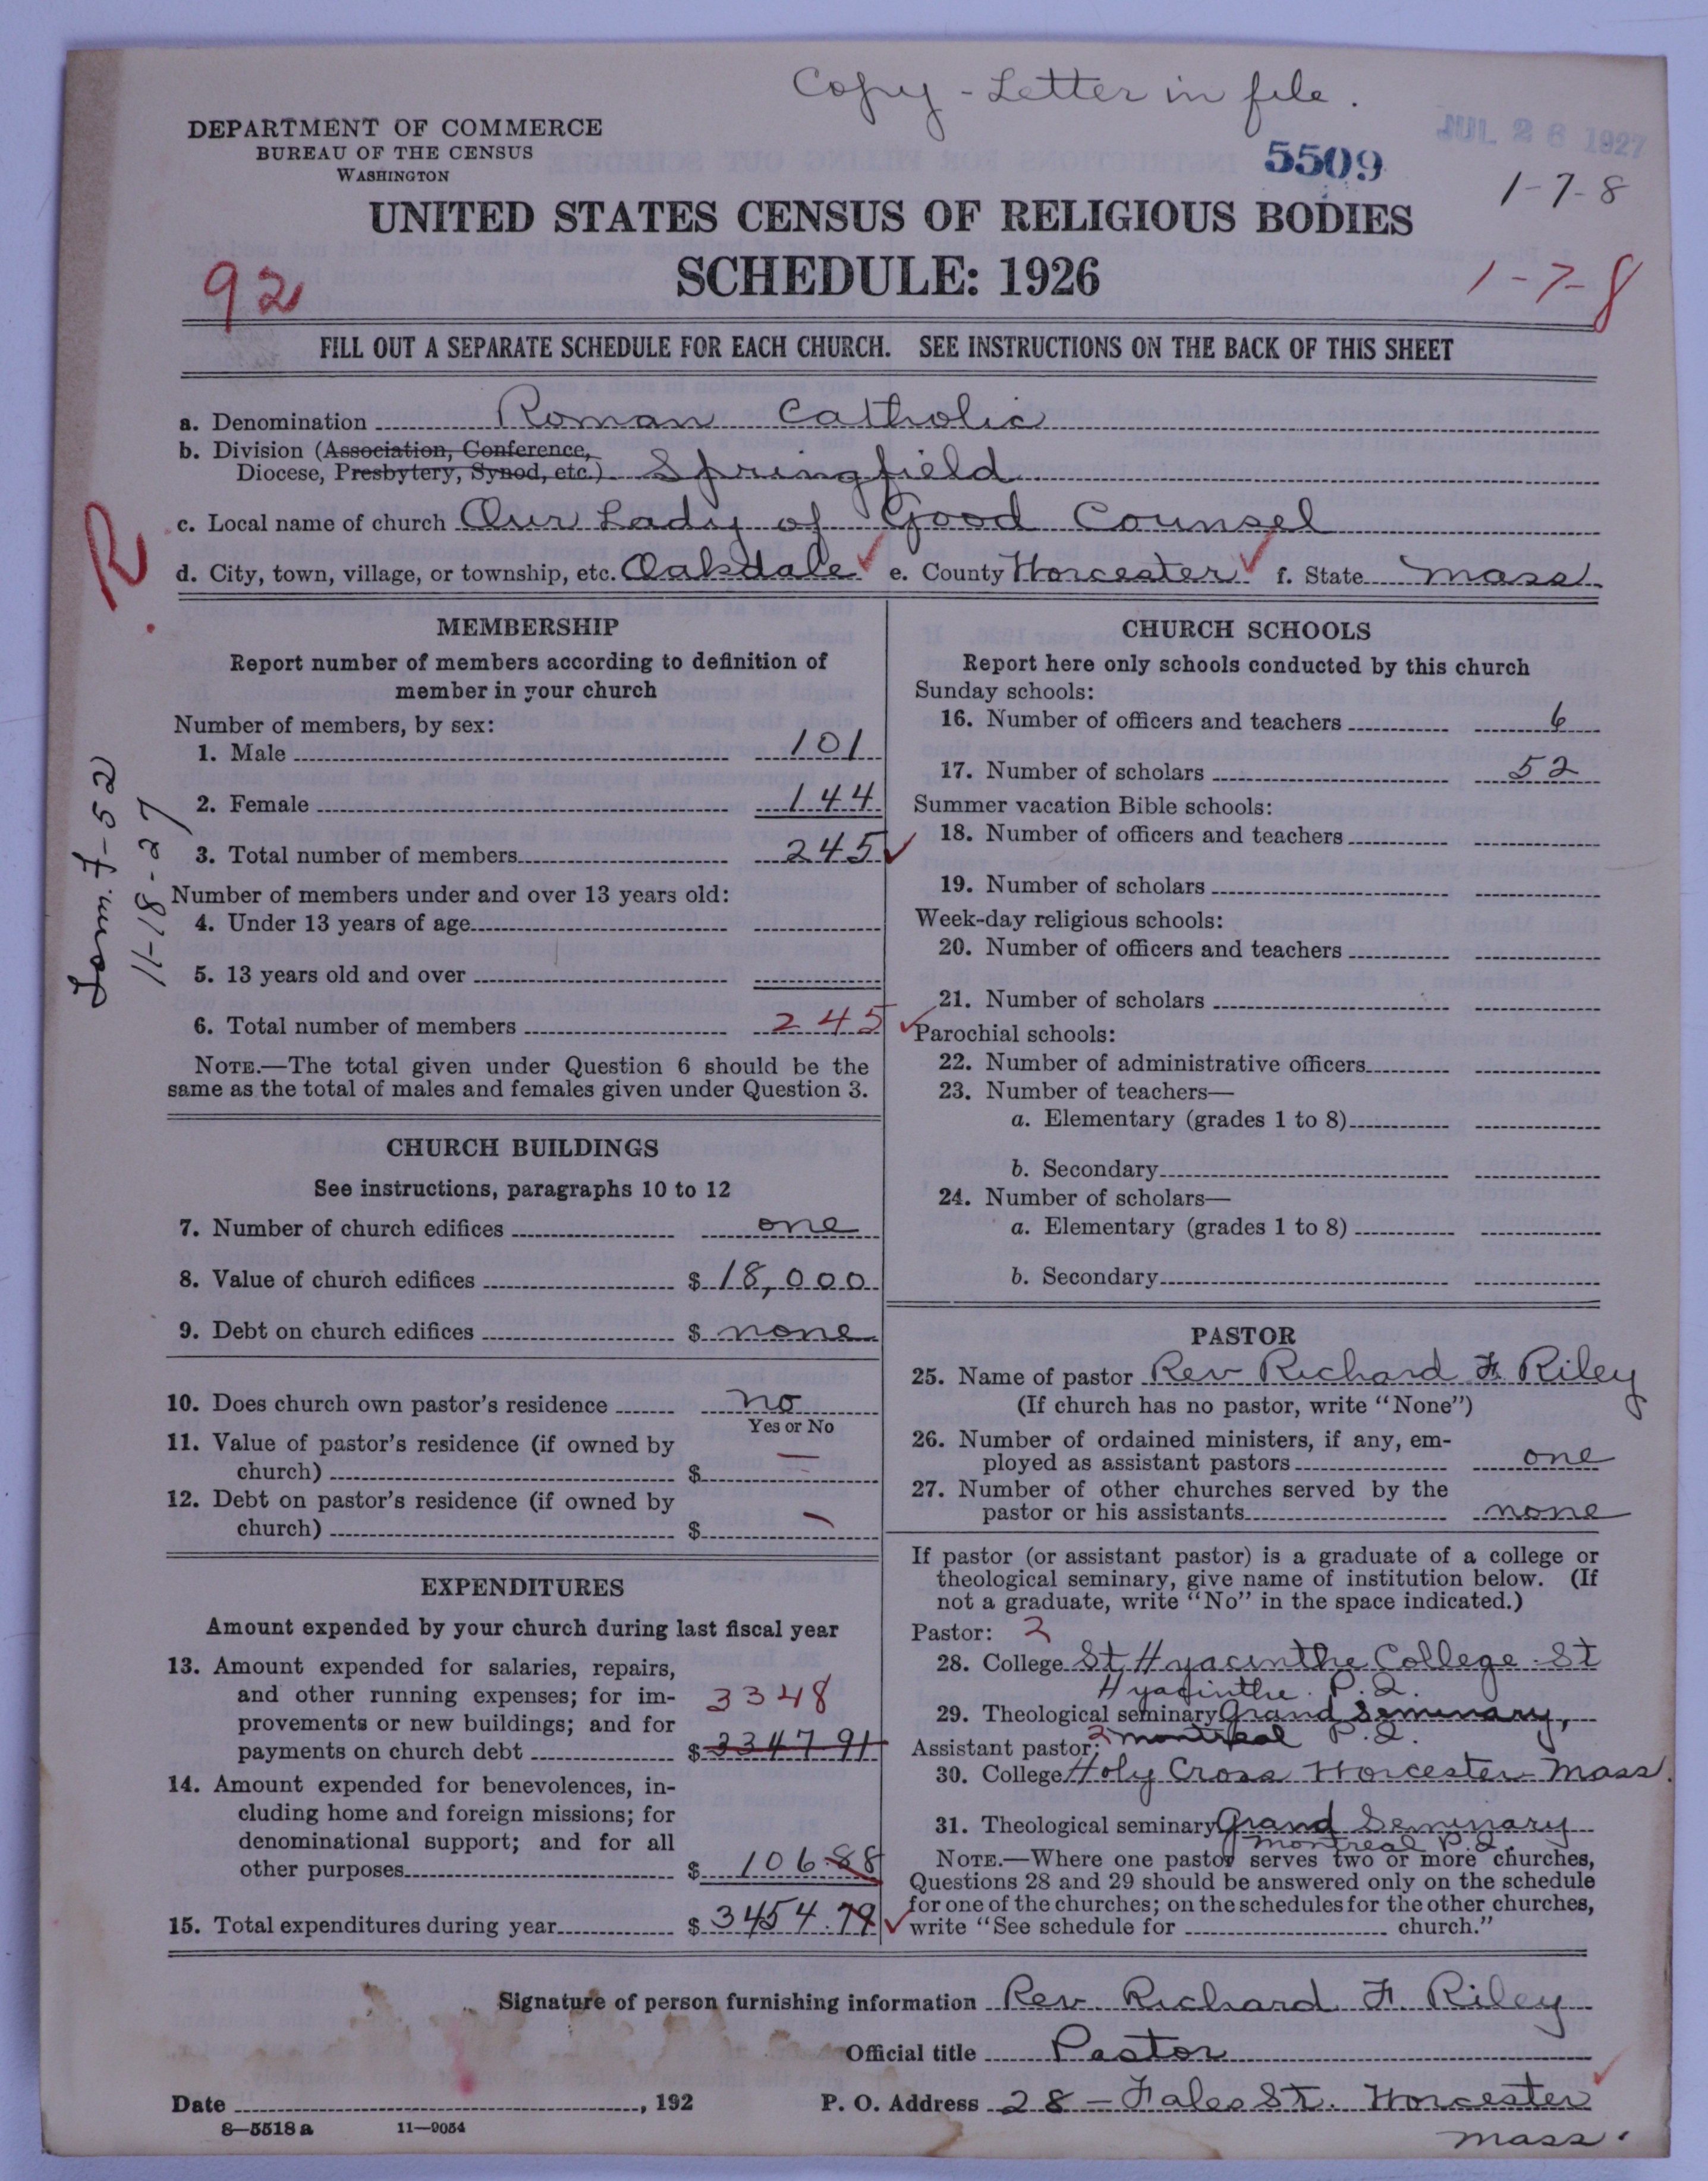 Copy - Letter in file.
DEPARTMENT OF COMMERCE
BUREAU OF THE CENSUS
WASHINGTON
5509
JUL 26 1927
1-7-8
UNITED STATES CENSUS OF RELIGIOUS BODIES
SCHEDULE: 1926
92
1-7-8
FILL OUT A SEPARATE SCHEDULE FOR EACH CHURCH. SEE INSTRUCTIONS ON THE BACK OF THIS SHEET
a. Denomination Roman Catholic
b. Division (Association, Conference,
Diocese, Presbytery, Synod, etc.) Springfield
c. Local name of church Our Lady of Good Counsel
R.
d. City, town, village, or township, etc. Oakdale e. County Worcester f. State Mass
MEMBERSHIP
Report number of members according to definition of
member in your church
Number of members, by sex:
1. Male 101
2. Female 144
3. Total number of members 245
7-52
11-18-27
Number of members under and over 13 years old:
4. Under 13 years of age
5. 13 years old and over
6. Total number of members 245
NOTE.—The total given under Question 6 should be the
same as the total of males and females given under Question 3.
CHURCH BUILDINGS
See instructions, paragraphs 10 to 12
7. Number of church edifices one
8. Value of church edifices $ 18,000
9. Debt on church edifices $ none
10. Does church own pastor's residence no
Yes or No
11. Value of pastor's residence (if owned by
church) $ —
12. Debt on pastor's residence (if owned by
church) $ —
EXPENDITURES
Amount expended by your church during last fiscal year
13. Amount expended for salaries, repairs,
and other running expenses; for im-
3348
provements or new buildings; and for
payments on church debt $ 3347.91
14. Amount expended for benevolences, in-
cluding home and foreign missions; for
denominational support; and for all
other purposes $ 106.88
15. Total expenditures during year $ 3454.79
CHURCH SCHOOLS
Report here only schools conducted by this church
Sunday schools:
16. Number of officers and teachers 6
17. Number of scholars 52
Summer vacation Bible schools:
18. Number of officers and teachers
19. Number of scholars
Week-day religious schools:
20. Number of officers and teachers
21. Number of scholars
Parochial schools:
22. Number of administrative officers
23. Number of teachers—
a. Elementary (grades 1 to 8)
b. Secondary
24. Number of scholars—
a. Elementary (grades 1 to 8)
b. Secondary
PASTOR
25. Name of pastor Rev Richard F. Riley
(If church has no pastor, write "None")
26. Number of ordained ministers, if any, em-
ployed as assistant pastors one
27. Number of other churches served by the
pastor or his assistants none
If pastor (or assistant pastor) is a graduate of a college or
theological seminary, give name of institution below. (If
not a graduate, write "No" in the space indicated.)
Pastor: 2
28. College St Hyacinthe College St
Hyacinthe. P.Q.
29. Theological seminary Grand Seminary,
Assistant pastor: 2 Montreal P.Q.
30. College Holy Cross Worcester Mass.
31. Theological seminary Grand Seminary
Montreal P.Q.
NOTE.—Where one pastor serves two or more churches,
Questions 28 and 29 should be answered only on the schedule
for one of the churches; on the schedules for the other churches,
write "See schedule for church."
Signature of person furnishing information Rev. Richard F. Riley
Official title Pastor
Date , 192
P. O. Address 28 - Fales St. Worcester
Mass.
8—5518a 11—9054